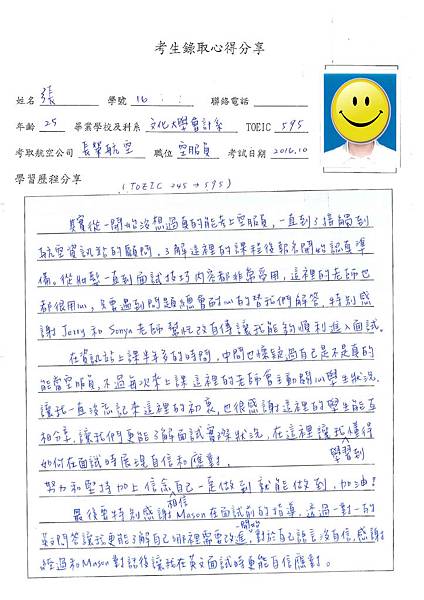 考生錄取心得分享
姓名 張 學號 16 : : 聯絡電話
年齡 25 畢業學校及科系 文化大學會計系 TOEIC 595
考取航空公司 長榮航空 職位 空服員 考試日期 2016.10
學習歷程分享
(TOEIC 245→595)
其實從一開始沒想過真的能去上空服員,一直到了接觸到
航空資訊站的顧問,了解這裡的課程後報名開始認真準
備。從妝髮一直到面試技巧內容都非常受用,這裡的老師也
都很用心,只要遇到問題總會耐心的替我們解答,特別感
謝Jerry和Sonya老師幫忙改自傳讓我能夠順利進入面試。
在資訊站上課半年多的時間,中間也懷疑過自己是不是真的
能當空服員,不過每次來上課這裡的老師會主動關心學生狀況,
讓我一直沒忘記來這裡的初衷,也很感謝這裡的學生能互
相分享,讓我們更能了解面試實際狀況,在這裡讓我懂得
學習到
如何在面試時展現自信和應對。
努力和堅持加上信念自己一定做到就能做到,加油!
相信
最後要特別感謝Mason在面試前的指導,透過一對一的
開始
英文問答讓我更能了解自己哪裡需要改進,對於自己語言沒自信,感謝
經過和Mason對話後讓我在英文面試時更能自信應對。